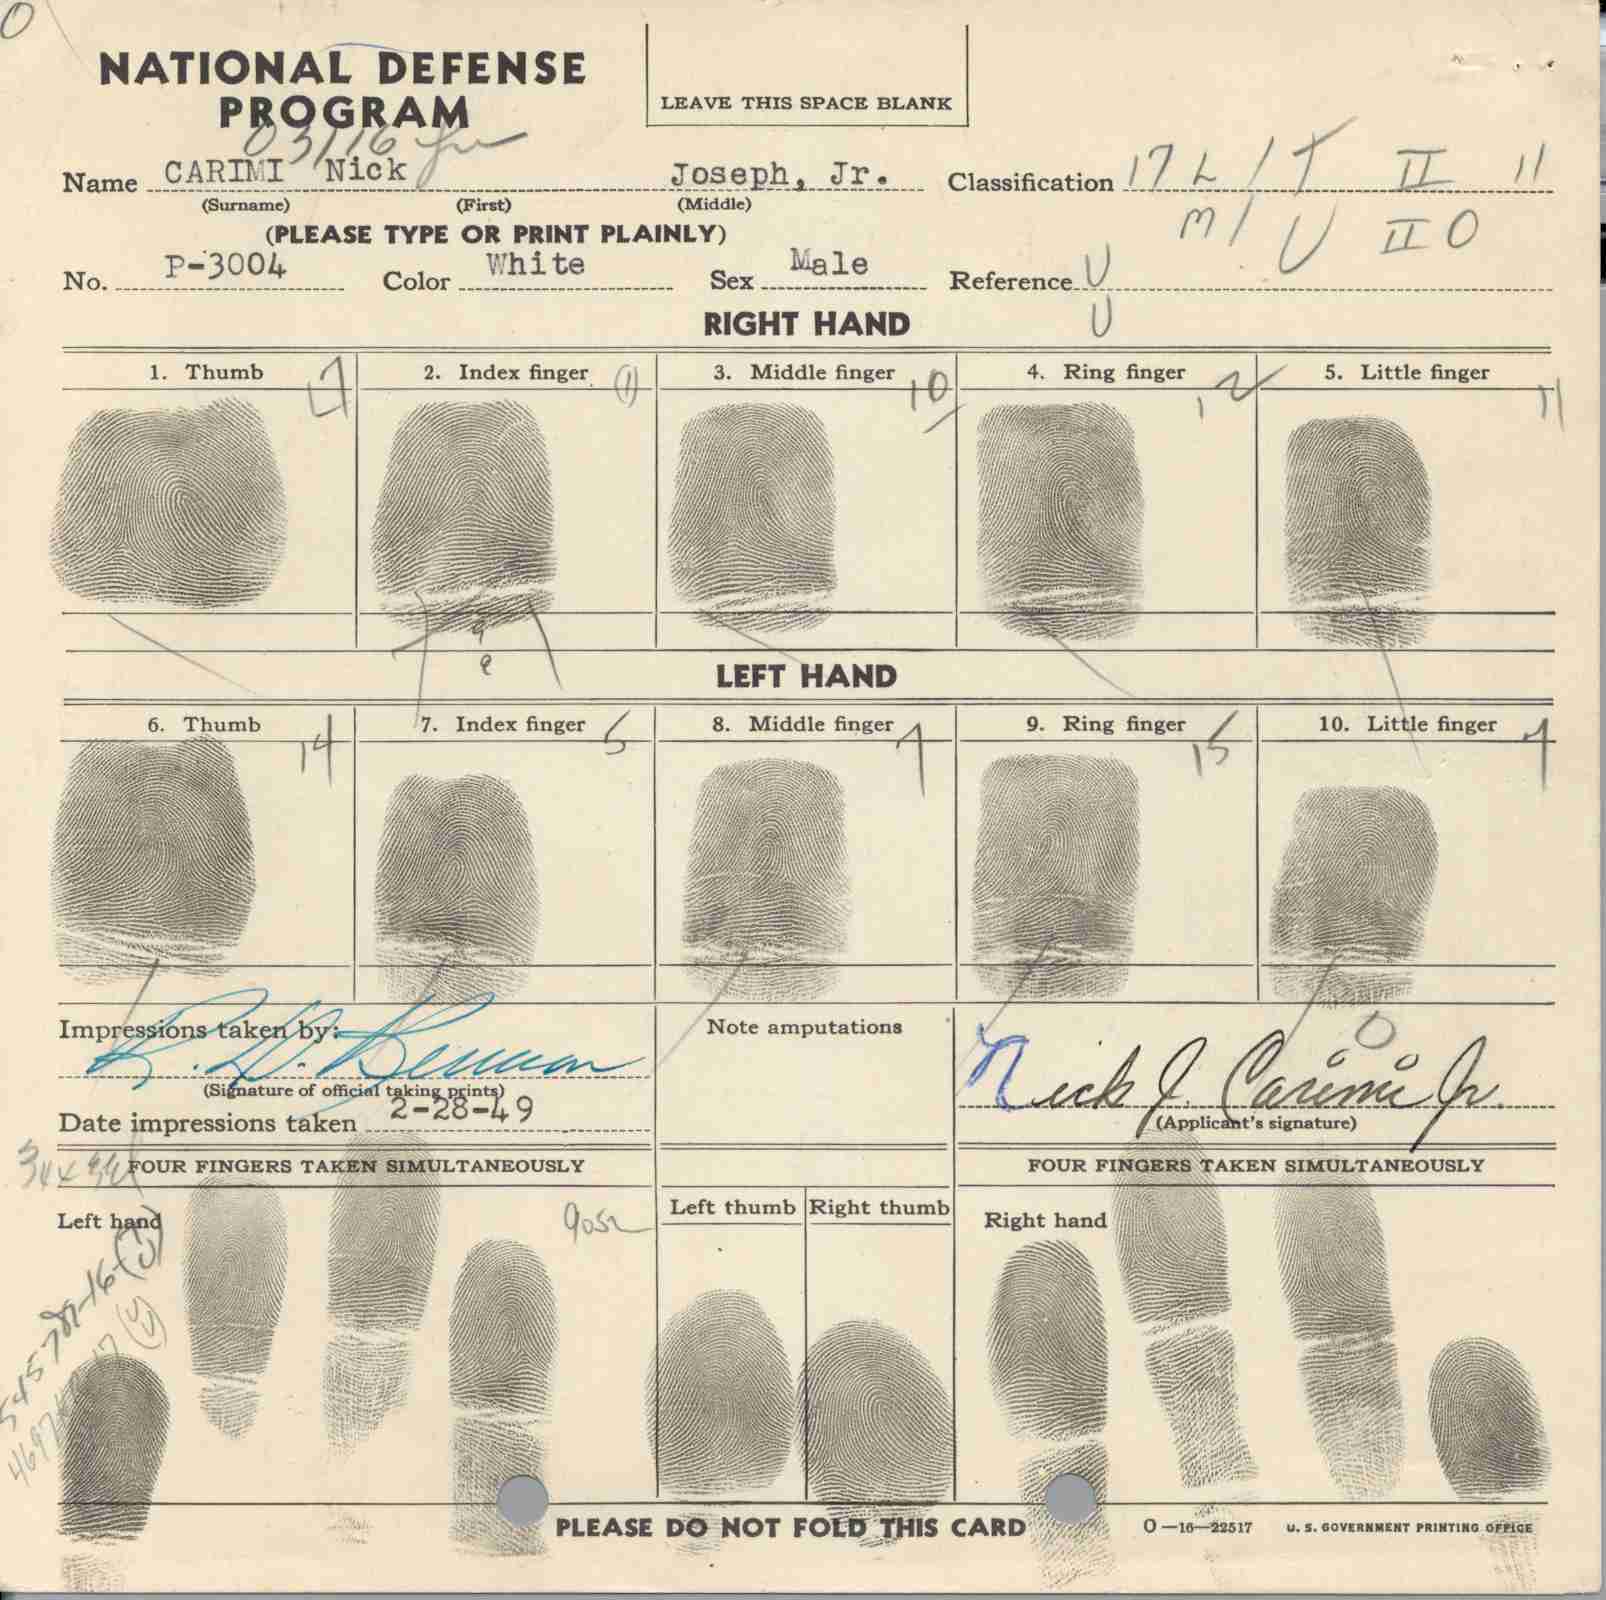 O
NATIONAL DEFENSE
PROGRAM
LEAVE THIS SPACE BLANK
03116
Name CARIMI Nick Joseph, Jr.
(Surname) (First) (Middle)
Classification 17 L / T II 11
M / U II O
(PLEASE TYPE OR PRINT PLAINLY)
No. P-3004 Color White Sex Male Reference U
U
RIGHT HAND
1. Thumb 17 2. Index finger 11 3. Middle finger 10 4. Ring finger 12 5. Little finger 11
LEFT HAND
6. Thumb 14 7. Index finger 5 8. Middle finger 7 9. Ring finger 15 10. Little finger 7
Impressions taken by:
(Signature of official taking prints)
Date impressions taken 2-28-49
Note amputations
O
Nick J. Carimi Jr.
(Applicant's signature)
FOUR FINGERS TAKEN SIMULTANEOUSLY
Left hand
9052
Left thumb Right thumb
FOUR FINGERS TAKEN SIMULTANEOUSLY
Right hand
PLEASE DO NOT FOLD THIS CARD
O—16—22517 U. S. GOVERNMENT PRINTING OFFICE